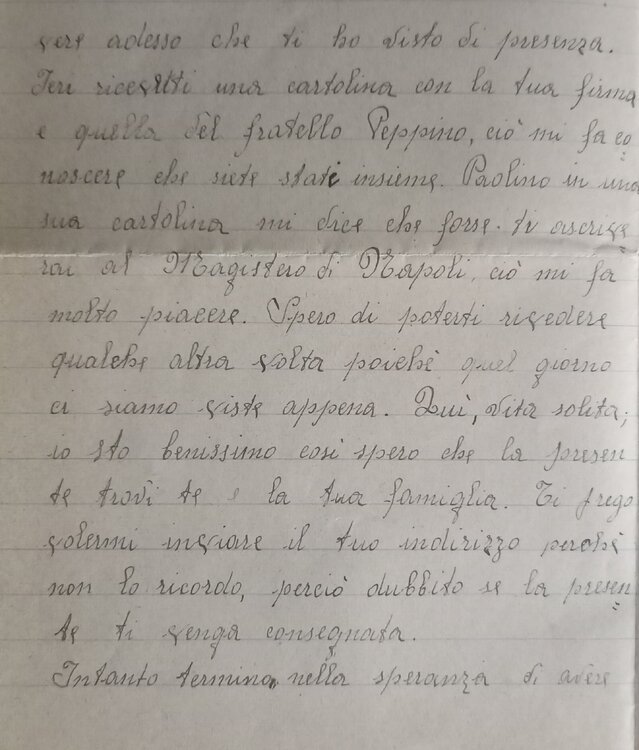 vere adesso che ti ho visto di presenza.
Ieri ricevetti una cartolina con la tua firma
e quella del fratello Peppino, ciò mi fa co
noscere che siete stati insieme. Paolino in una
sua cartolina mi dice che forse ti ascrive
rai al Magistero di Napoli, ciò mi fa
molto piacere. Spero di poterti rivedere
qualche altra volta poichè quel giorno
ci siamo viste appena. Quì, vita solita;
io sto benissimo così spero che la presen
te trovi te e la tua famiglia. Ti prego
volermi inviare il tuo indirizzo perchè
non lo ricordo, perciò dubbito se la presen
te ti venga consegnata.
Intanto termino, nella speranza di avere